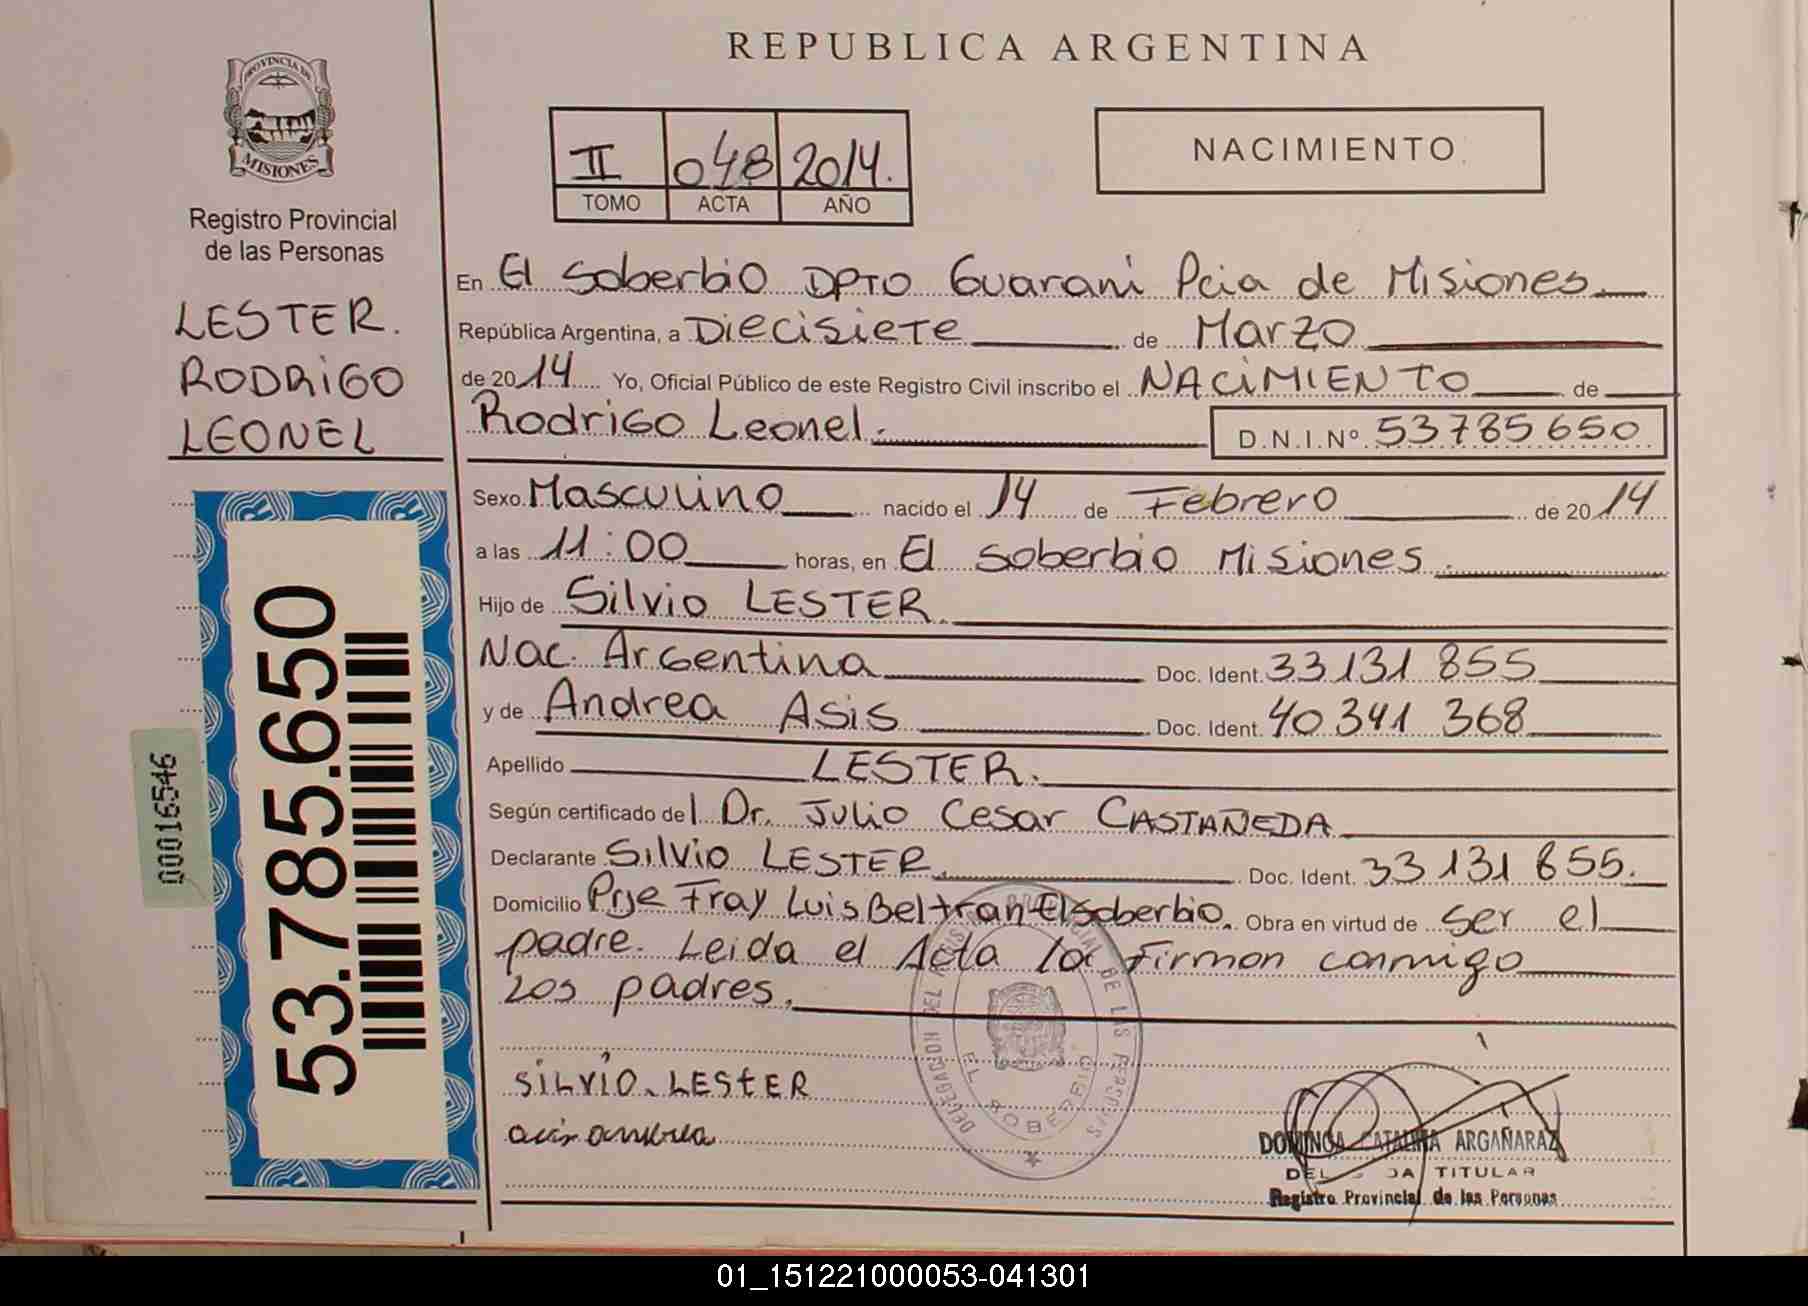 REPUBLICA ARGENTINA
PROVINCIA DE
MISIONES
Registro Provincial
de las Personas
LESTER.
RODRIGO
LEONEL
53.785.650
00016546
II 048 2014.
TOMO ACTA AÑO
NACIMIENTO
En El Soberbio DPTO Guarani Pcia de Misiones.
República Argentina, a Diecisiete de Marzo
de 2014 Yo, Oficial Público de este Registro Civil inscribo el NACIMIENTO de
Rodrigo Leonel. D.N.I.Nº 53785650
Sexo Masculino nacido el 14 de Febrero de 2014
a las 11:00 horas, en El Soberbio Misiones.
Hijo de Silvio LESTER.
Nac. Argentina Doc. Ident. 33131 855
y de Andrea ASIS Doc. Ident. 40341 368
Apellido LESTER.
Según certificado del Dr. Julio Cesar CASTAÑEDA
Declarante Silvio LESTER. Doc. Ident. 33131 855.
Domicilio Prje Fray Luis Beltran El Soberbio. Obra en virtud de ser el
padre. Leida el Acta la Firman conmigo
Los padres.
SILVIO. LESTER
DELEGACION DEL REGISTRO PROVINCIAL DE LAS PERSONAS
EL SOBERBIO
DOMINGA CATALINA ARGAÑARAZ
DELEGADA TITULAR
Registro Provincial de las Personas
01_151221000053-041301